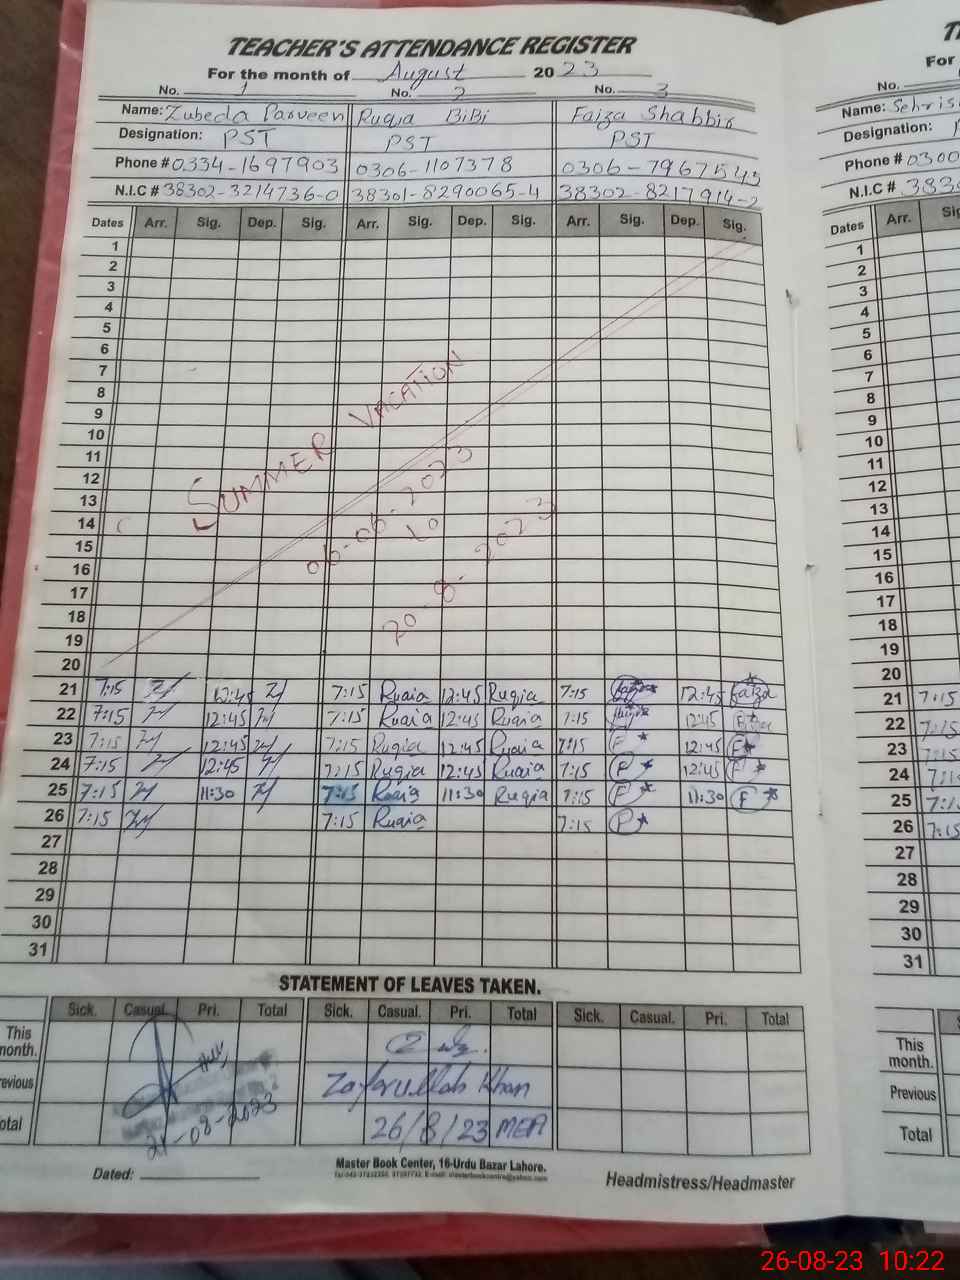 TEACHER'S ATTENDANCE REGISTER
For the month of August 2023
No. 1 No. 2 No. 3
Name: Zubeda Parveen Ruqia BiBi Faiza Shabbir
Designation: PST PST PST
Phone # 0334-1697903 0306-1107378 0306-7967545
N.I.C # 38302-3214736-0 38301-8290065-4 38302-8217914-2
Dates Arr. Sig. Dep. Sig. Arr. Sig. Dep. Sig. Arr. Sig. Dep. Sig.
1
2
3
4
5
6
7
8
9
10
11
12
13
14
15
16
17
18
19
20
SUMMER VACATION
06-06-2023
to
20-8-2023
21 7:15 12:45 7:15 Ruqia 12:45 Ruqia 7:15 Faiza 12:45 Faiza
22 7:15 12:45 7:15 Ruqia 12:45 Ruqia 7:15 12:45
23 7:15 12:45 7:15 Ruqia 12:45 Ruqia 7:15 F 12:45 F
24 7:15 12:45 7:15 Ruqia 12:45 Ruqia 7:15 F 12:45 F
25 7:15 11:30 7:15 Ruqia 11:30 Ruqia 7:15 F 11:30 F
26 7:15 7:15 Ruqia 7:15 F
27
28
29
30
31
STATEMENT OF LEAVES TAKEN.
Sick. Casual. Pri. Total Sick. Casual. Pri. Total Sick. Casual. Pri. Total
This month.
Previous Zafarullah Khan
Total 26/8/23 MEA
-08-2023
Dated:
Master Book Center, 16-Urdu Bazar Lahore.
Headmistress/Headmaster
For
No.
Name: Sehris
Designation:
Phone # 0300
N.I.C # 383
Dates Arr. Sig
1
2
3
4
5
6
7
8
9
10
11
12
13
14
15
16
17
18
19
20
21 7:15
22 7:15
23 7:15
24 7:15
25 7:15
26 7:15
27
28
29
30
31
This month.
Previous
Total
26-08-23 10:22